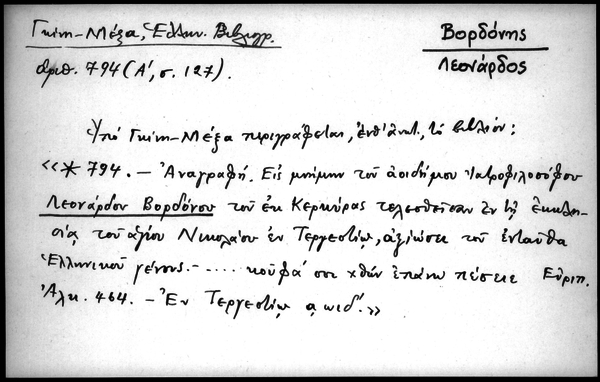 Γκίνη-Μέξα, Ἑλλην. Βιβλιογρ.
ἀριθ. 794 (Α΄, σ. 127).
Βορδόνης
Λεονάρδος
Ὑπό Γκίνη-Μέξα περιγράφεται, ἐνθ' ἀνωτ., τό βιβλίον:
«* 794. – Ἀναγραφή. Εἰς μνήμην τοῦ ἀοιδήμου Ἰατροφιλοσόφου
Λεονάρδου Βορδόνου τοῦ ἐκ Κερκύρας τελεσθεῖσαν ἐν τῇ ἐκκλη-
σίᾳ τοῦ ἁγίου Νικολάου ἐν Τεργεστίῳ, ἀξιώσει τοῦ ἐνταῦθα
Ἑλληνικοῦ γένους. – ..... κούφά σοι χθών ἐπάνω πέσειε Εὐριπ.
Ἀλκ. 464. – Ἐν Τεργεστίῳ αωιδ΄.»